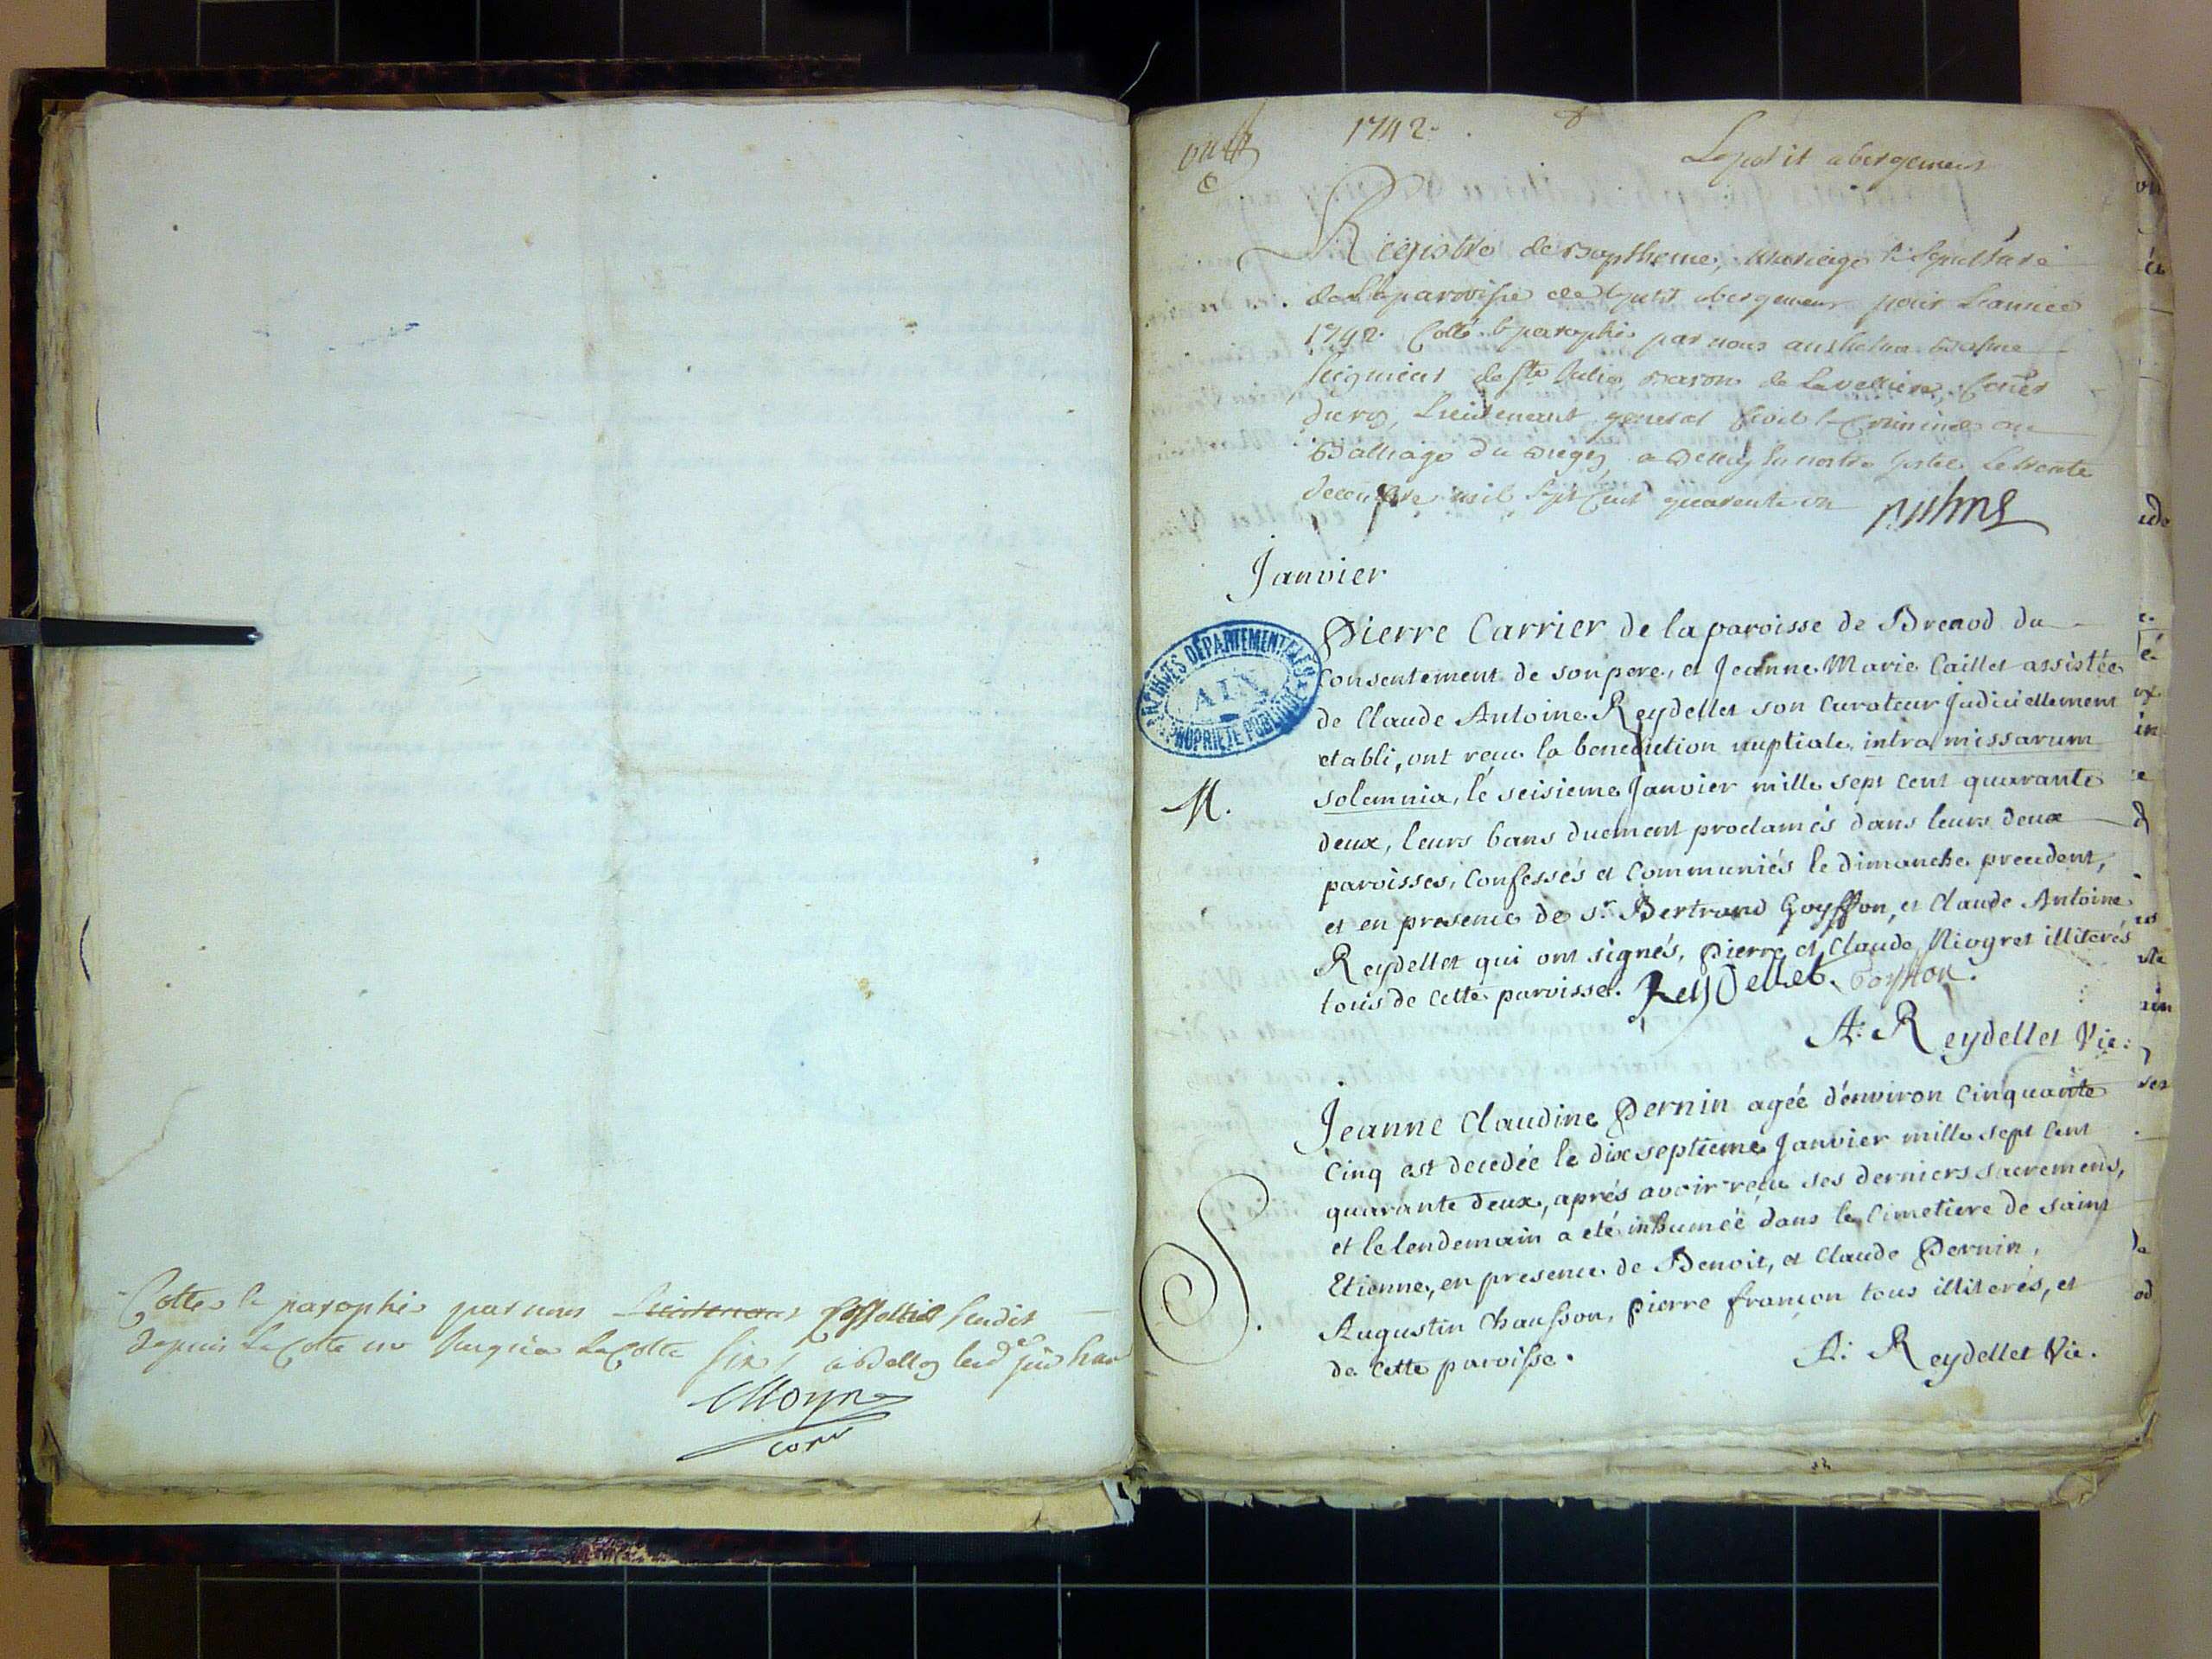 Cottes & paraphés par nous Lieutenant soussigné
depuis La Cotte une jusqu'a La Cotte six, a Belley led jour
1742.
Le petit abergement
Registre de Baptheme, mariage & sepulture
de La paroisse de le petit abergement pour L'année
1742. Cotté & paraphé par nous anthelme
seigneur de Ste Julie, Baron de La velliere, Coner
du roy, Lieutenant general Civil & Criminel au
Balliage du Bugey a Belley En nostre hostel Le trente
decembre mil sept Cent quarente un
Janvier
Pierre Carrier de la paroisse de Brenod du
consentement de son pere, et Jeanne Marie Caillet assistée
de Claude Antoine Reydellet son Curateur judiciellement
etabli, ont reçu la benediction nuptiale intra missarum
solemnia, le seisieme Janvier mille sept cent quarante
deux, leurs bans duement proclamés dans leurs deux
paroisses, Confessés et Communiés le dimanche precedent,
et en presence de sr. Bertrand Goyffon, et Claude Antoine
Reydellet qui ont signés, Pierre et Claude Niogret illiterés
tous de cette paroisse. Reydellet. Goyffon.
M.
A: Reydellet Vic:
Jeanne Claudine Pernin agée d'environ Cinquante
Cinq est decedée le dixseptieme Janvier mille sept cent
quarante deux, aprés avoir reçu ses derniers sacremens,
et le lendemain a eté inhumée dans le Cimetiere de saint
Etienne, en presence de Benoit, et Claude Pernin,
Augustin Chausson, Pierre françon tous illiterés, et
de cette paroisse.
S.
A: Reydellet Vic.
ARCHIVES DÉPARTEMENTALES
AIN
PROPRIÉTÉ PUBLIQUE